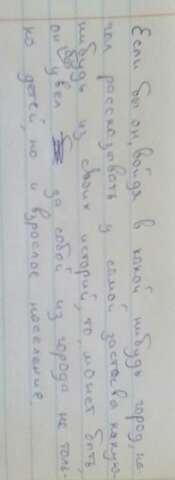 Если бы он, войдя в какой нибудь город, на-
чал рассказывать у самой заставы какую-
нибудь из своих историй, то, может быть,
он бы увел за собой из города не толь-
ко детей, но и взрослое население